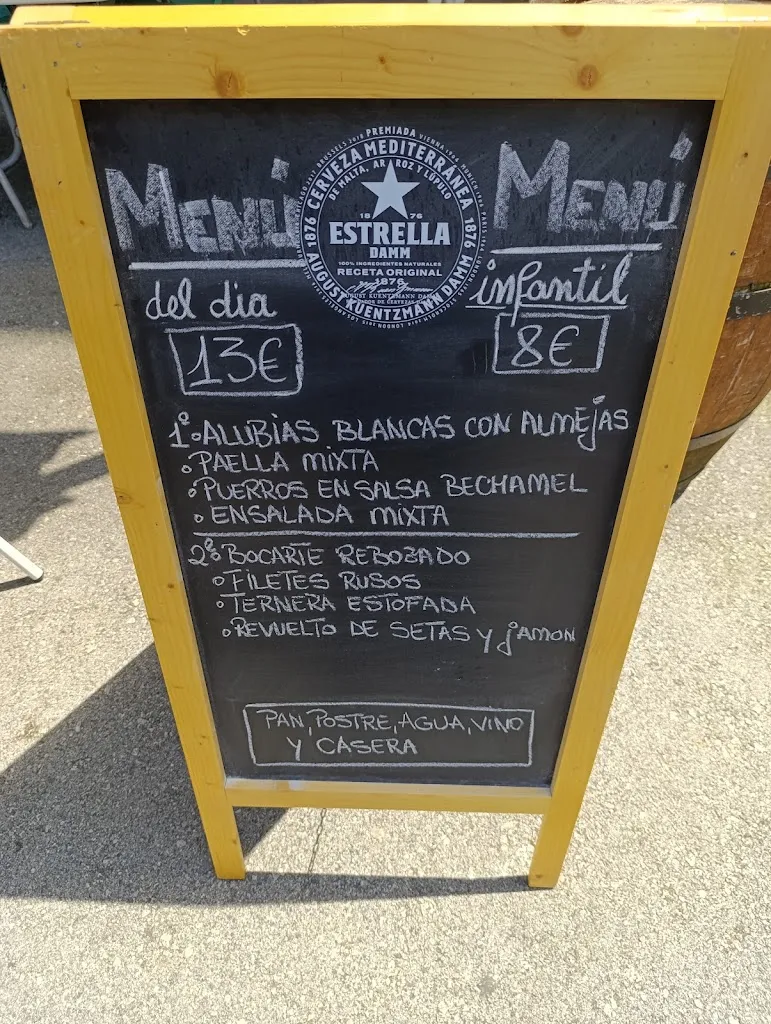 MENÚ
del dia
13€
PREMIADA
CERVEZA MEDITERRÁNEA
DE MALTA, ARROZ Y LÚPULO
1876
1876
18 76
ESTRELLA
DAMM
100% INGREDIENTES NATURALES
RECETA ORIGINAL
1876
AUGUST KUENTZMANN DAMM
MENÚ
infantil
8€
1º ALUBIAS BLANCAS CON ALMEJAS
PAELLA MIXTA
PUERROS EN SALSA BECHAMEL
ENSALADA MIXTA
2º BOCARTE REBOZADO
FILETES RUSOS
TERNERA ESTOFADA
REVUELTO DE SETAS Y JAMON
PAN, POSTRE, AGUA, VINO
Y CASERA